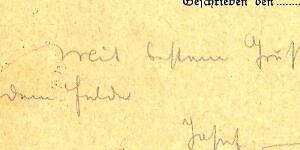 Geschrieben den ........
Mit bestem Gruß
dem Felde
Josef